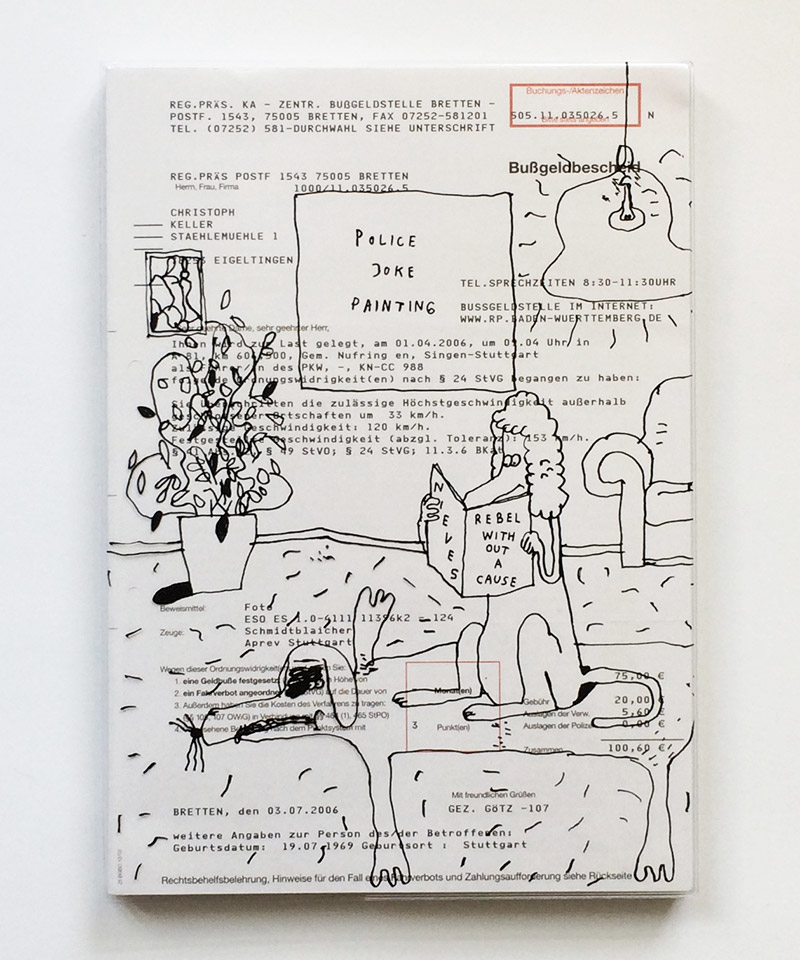 Buchungs-/Aktenzeichen
REG.PRÄS. KA - ZENTR. BUßGELDSTELLE BRETTEN -
POSTF. 1543, 75005 BRETTEN, FAX 07252-581201
505.11.035026.5 N
Bitte stets angeben
TEL. (07252) 581-DURCHWAHL SIEHE UNTERSCHRIFT
Bußgeldbescheid
REG.PRÄS POSTF 1543 75005 BRETTEN
Herrn, Frau, Firma
1000/11.035026.5
CHRISTOPH
KELLER
STAEHLEMUEHLE 1
EIGELTINGEN
POLICE
JOKE
PAINTING
TEL.SPRECHZEITEN 8:30-11:30UHR
BUSSGELDSTELLE IM INTERNET:
WWW.RP.BADEN-WUERTTEMBERG.DE
Sehr geehrte Dame, sehr geehrter Herr,
Ihnen wird zur Last gelegt, am 01.04.2006, um 09.04 Uhr in
A 81, km 600,500, Gem. Nufring en, Singen-Stuttgart
als Fahrer/in des PKW, -, KN-CC 988
folgende Ordnungswidrigkeit(en) nach § 24 StVG begangen zu haben:
Sie überschritten die zulässige Höchstgeschwindigkeit außerhalb
geschlossener Ortschaften um 33 km/h.
Zulässige Geschwindigkeit: 120 km/h.
Festgestellte Geschwindigkeit (abzgl. Toleranz): 153 km/h.
§ 49 StVO; § 24 StVG; 11.3.6 BKat
NIEVES
REBEL
WITH
OUT
A
CAUSE
Beweismittel:
Foto
ESO ES 1.0-6111 124
Zeuge:
Schmidtblaicher
Aprev Stuttgart
Wegen dieser Ordnungswidrigkeit Sie:
1. eine Geldbuße festgesetzt Höhe von
75,00 €
2. ein Fahrverbot angeordnet StVG) auf die Dauer von
Monat(en)
3. Außerdem haben Sie die Kosten des Verfahrens zu tragen:
Gebühr
20,00 €
107 OWiG) in Verbindung (1), 465 StPO)
Auslagen der Verw.
5,60 €
4. nach dem Punktsystem mit
3
Punkt(en)
Auslagen der Polizei
0,00 €
Zusammen
100,60 €
Mit freundlichen Grüßen
BRETTEN, den 03.07.2006
GEZ. GÖTZ -107
weitere Angaben zur Person des/der Betroffenen:
Geburtsdatum: 19.07.1969 Geburtsort : Stuttgart
Rechtsbehelfsbelehrung, Hinweise für den Fall eines Fahrverbots und Zahlungsaufforderung siehe Rückseite